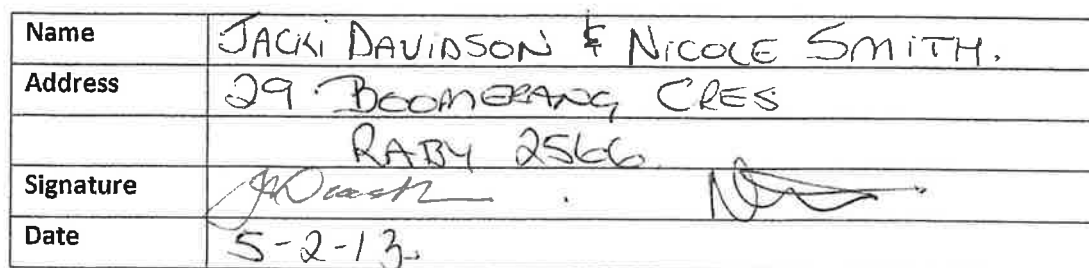 Name JACKi DAVIDSON & NICOLE SMiTH.
Address 29 BOOMERANG CRES
RABY 2566
Signature
Date 5-2-13.